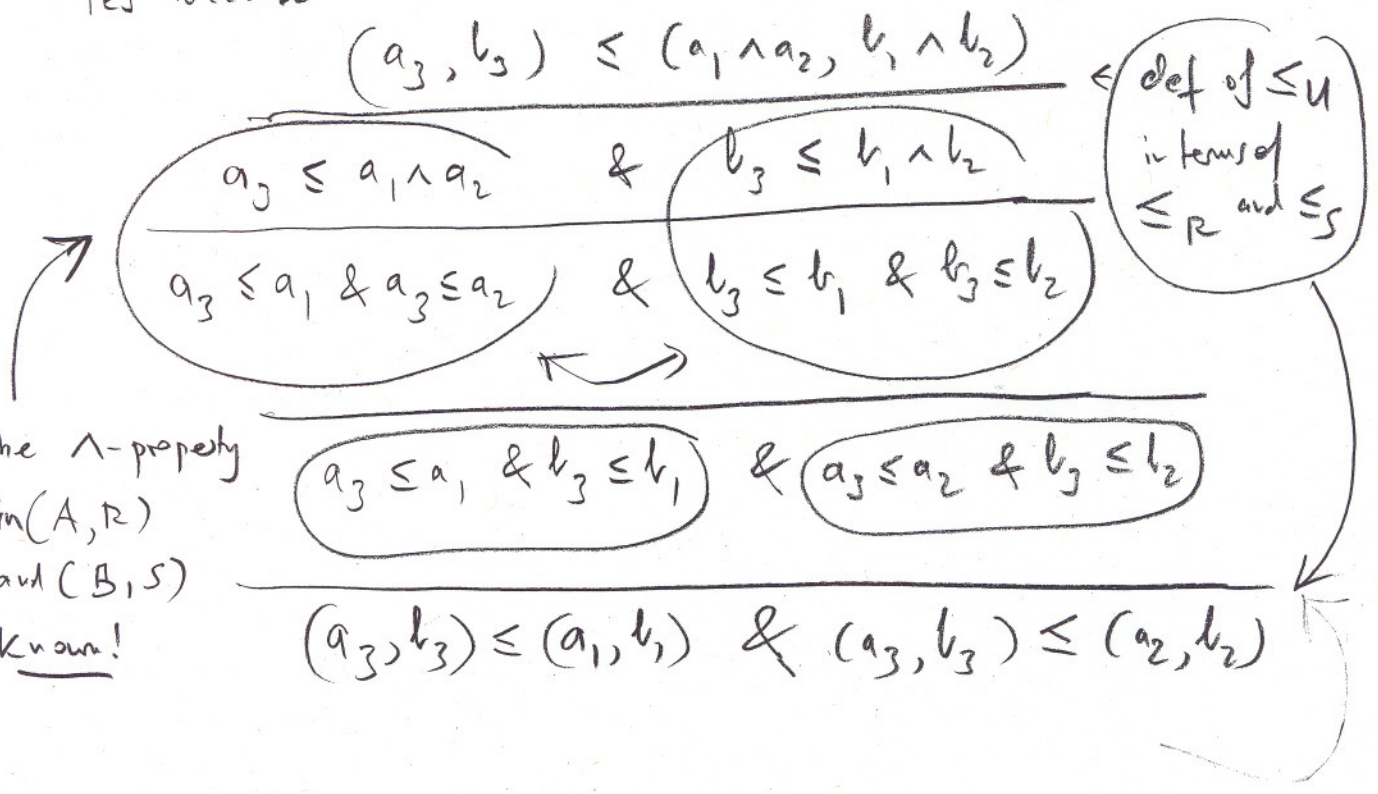 (a₃, b₃) ≤ (a₁ ∧ a₂, b₁ ∧ b₂)
def of ≤U
in terms of
≤R and ≤S
a₃ ≤ a₁ ∧ a₂ & b₃ ≤ b₁ ∧ b₂
a₃ ≤ a₁ & a₃ ≤ a₂ & b₃ ≤ b₁ & b₃ ≤ b₂
he ∧-property
in (A, R)
and (B, S)
known!
a₃ ≤ a₁ & b₃ ≤ b₁ & a₃ ≤ a₂ & b₃ ≤ b₂
(a₃, b₃) ≤ (a₁, b₁) & (a₃, b₃) ≤ (a₂, b₂)